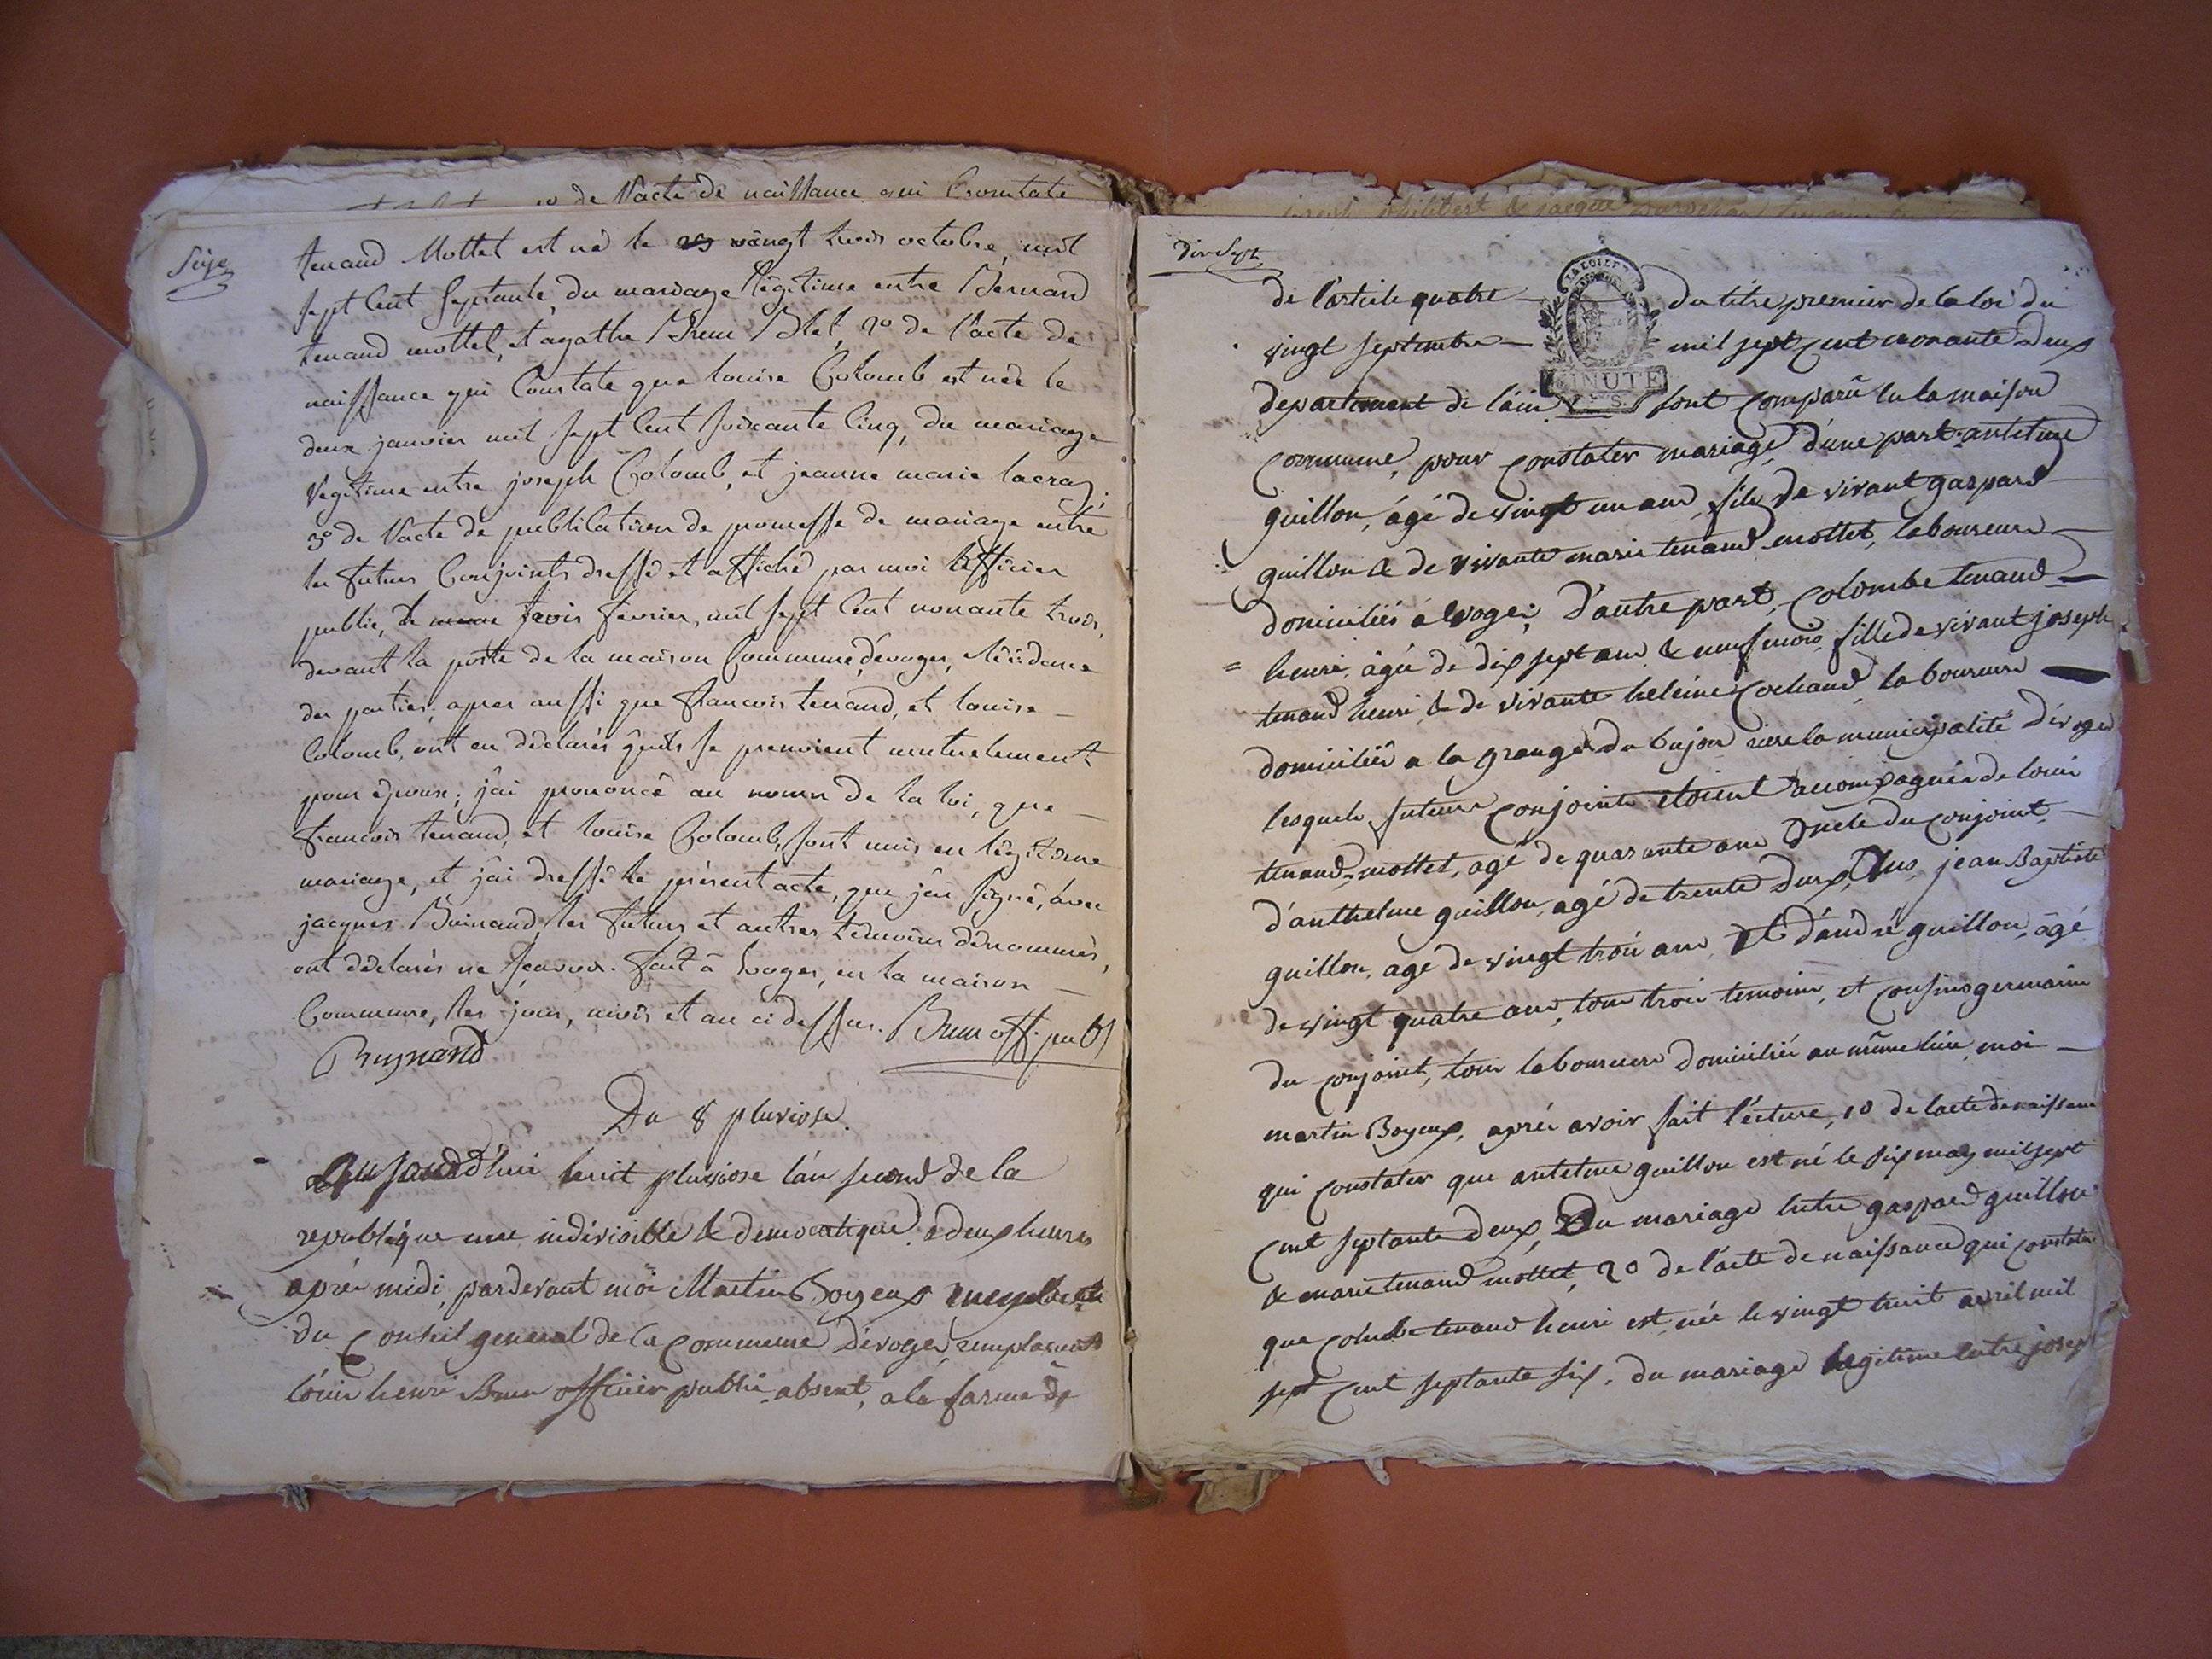 de l'acte de naissance qui Constate
Seize
tenand Mottet est né le vingt trois octobre mil
sept Cent Septante, du mariage légitime entre Bernard
tenand mottet, et agathe Brun Blet, 2° de l'acte de
naissance qui Constate que louise Colomb est née le
deux janvier mil sept Cent soixante Cinq, du mariage
légitime entre joseph Colomb, et jeanne marie lacraz;
3° de l'acte de publication de promesse de mariage entre
les futurs Conjoints dressé et affiché par moi officier
public, le trois fevrier, mil sept Cent nonante trois,
devant la porte de la maison Commune d'évoges, résidence
des parties; apres aussi que francois tenand, et louise
Colomb, ont eu déclarés qu'ils se prenoient mutuelement
pour époux; j'ai prononcé au nomn de la loi, que
francois tenand, et louise Colomb, sont unis en légitime
mariage, et j'ai dressé le présent acte, que j'ai signé, avec
jacques Buinand, les futurs et autres témoins dénommés,
ont déclarés ne sçavoir. fait à Evoges, en la maison
Commune, les jour, mois et an ci dessus. Brun off. publ
Buynand
Du 8 pluviose.
Aujourd'hui huit pluviose l'an second de la
republique une indivisible & democratique à deux heures
après midi, pardevant moi Martin Boyeux
du Conseil general de la Commune d'évoges, remplacent
louis henri Brun officier public absent, a la forme de
dix sept
de l'article quatre du titre premier de la loi du
vingt septembre mil sept cent nonante deux
MINUTE
departement de l'ain, sont comparû en la maison
Commune, pour constater mariage, d'une part: antelme
guillon, âgé de vingt un ans, fils de vivant gaspard
guillon & de vivante marie tenand mottet, laboureurs
domiciliés à Evoges; D'autre part, Colombe tenand
henri, âgée de dix sept ans & neuf mois, fille de vivant joseph
tenand henri & de vivante heleine Cochand laboureurs
domiciliés a la grange du bujon riere la municipalité d'évoges
lesquels futurs conjoints étoient accompagnés de louis
tenand-mottet, agé de quarante ans oncle du conjoint
d'anthelme guillon, agé de trente deux ans, jean Baptiste
guillon, agé de vingt trois ans, et d'andré guillon, âgé
de vingt quatre ans, tous trois temoins, et cousins germains
du conjoint, tous laboureurs domiciliés au même lieu, moi
martin Boyeux, après avoir fait lécture, 1° de lacte de naissance
qui constater que antelme guillon est né le six may mil sept
cent septante deux, du mariage entre gaspard guillon
& marie tenand mottet, 2° de l'acte de naissance qui constate
que colombe tenand henri est née le vingt huit avril mil
sept cent septante six, du mariage legitime entre joseph